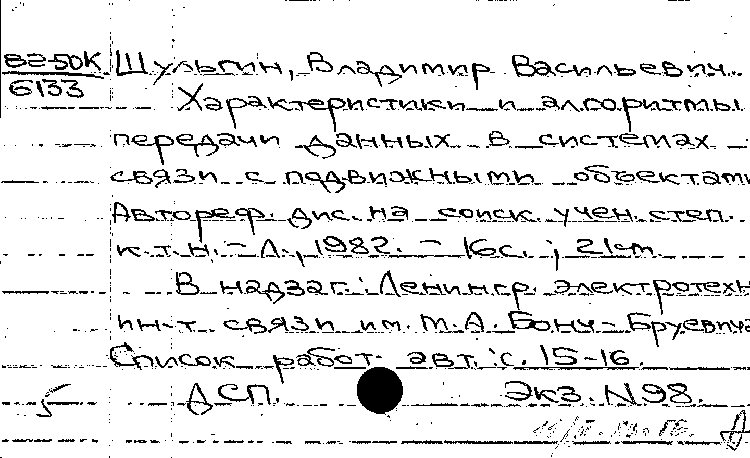 В2-50К Шульгин, Владимир Васильевич.
6133
Характеристики и алгоритмы
передачи данных в системах
связи с подвижными объектами
Автореф. дис. на соиск. учен. степ.
к.т.н. – Л., 1982. – 16с. ; 21см
В надзаг.: Ленингр. электротехн
ин-т связи им. М.А. Бонч-Бруевича
Список работ авт.: с. 15-16.
ДСП. Экз. N98.